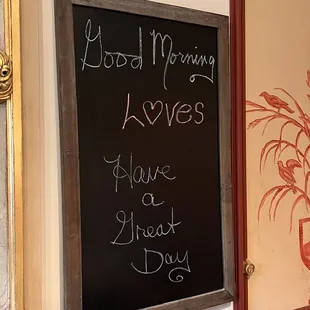 Good Morning
L♡ves
Have
a
Great
Day